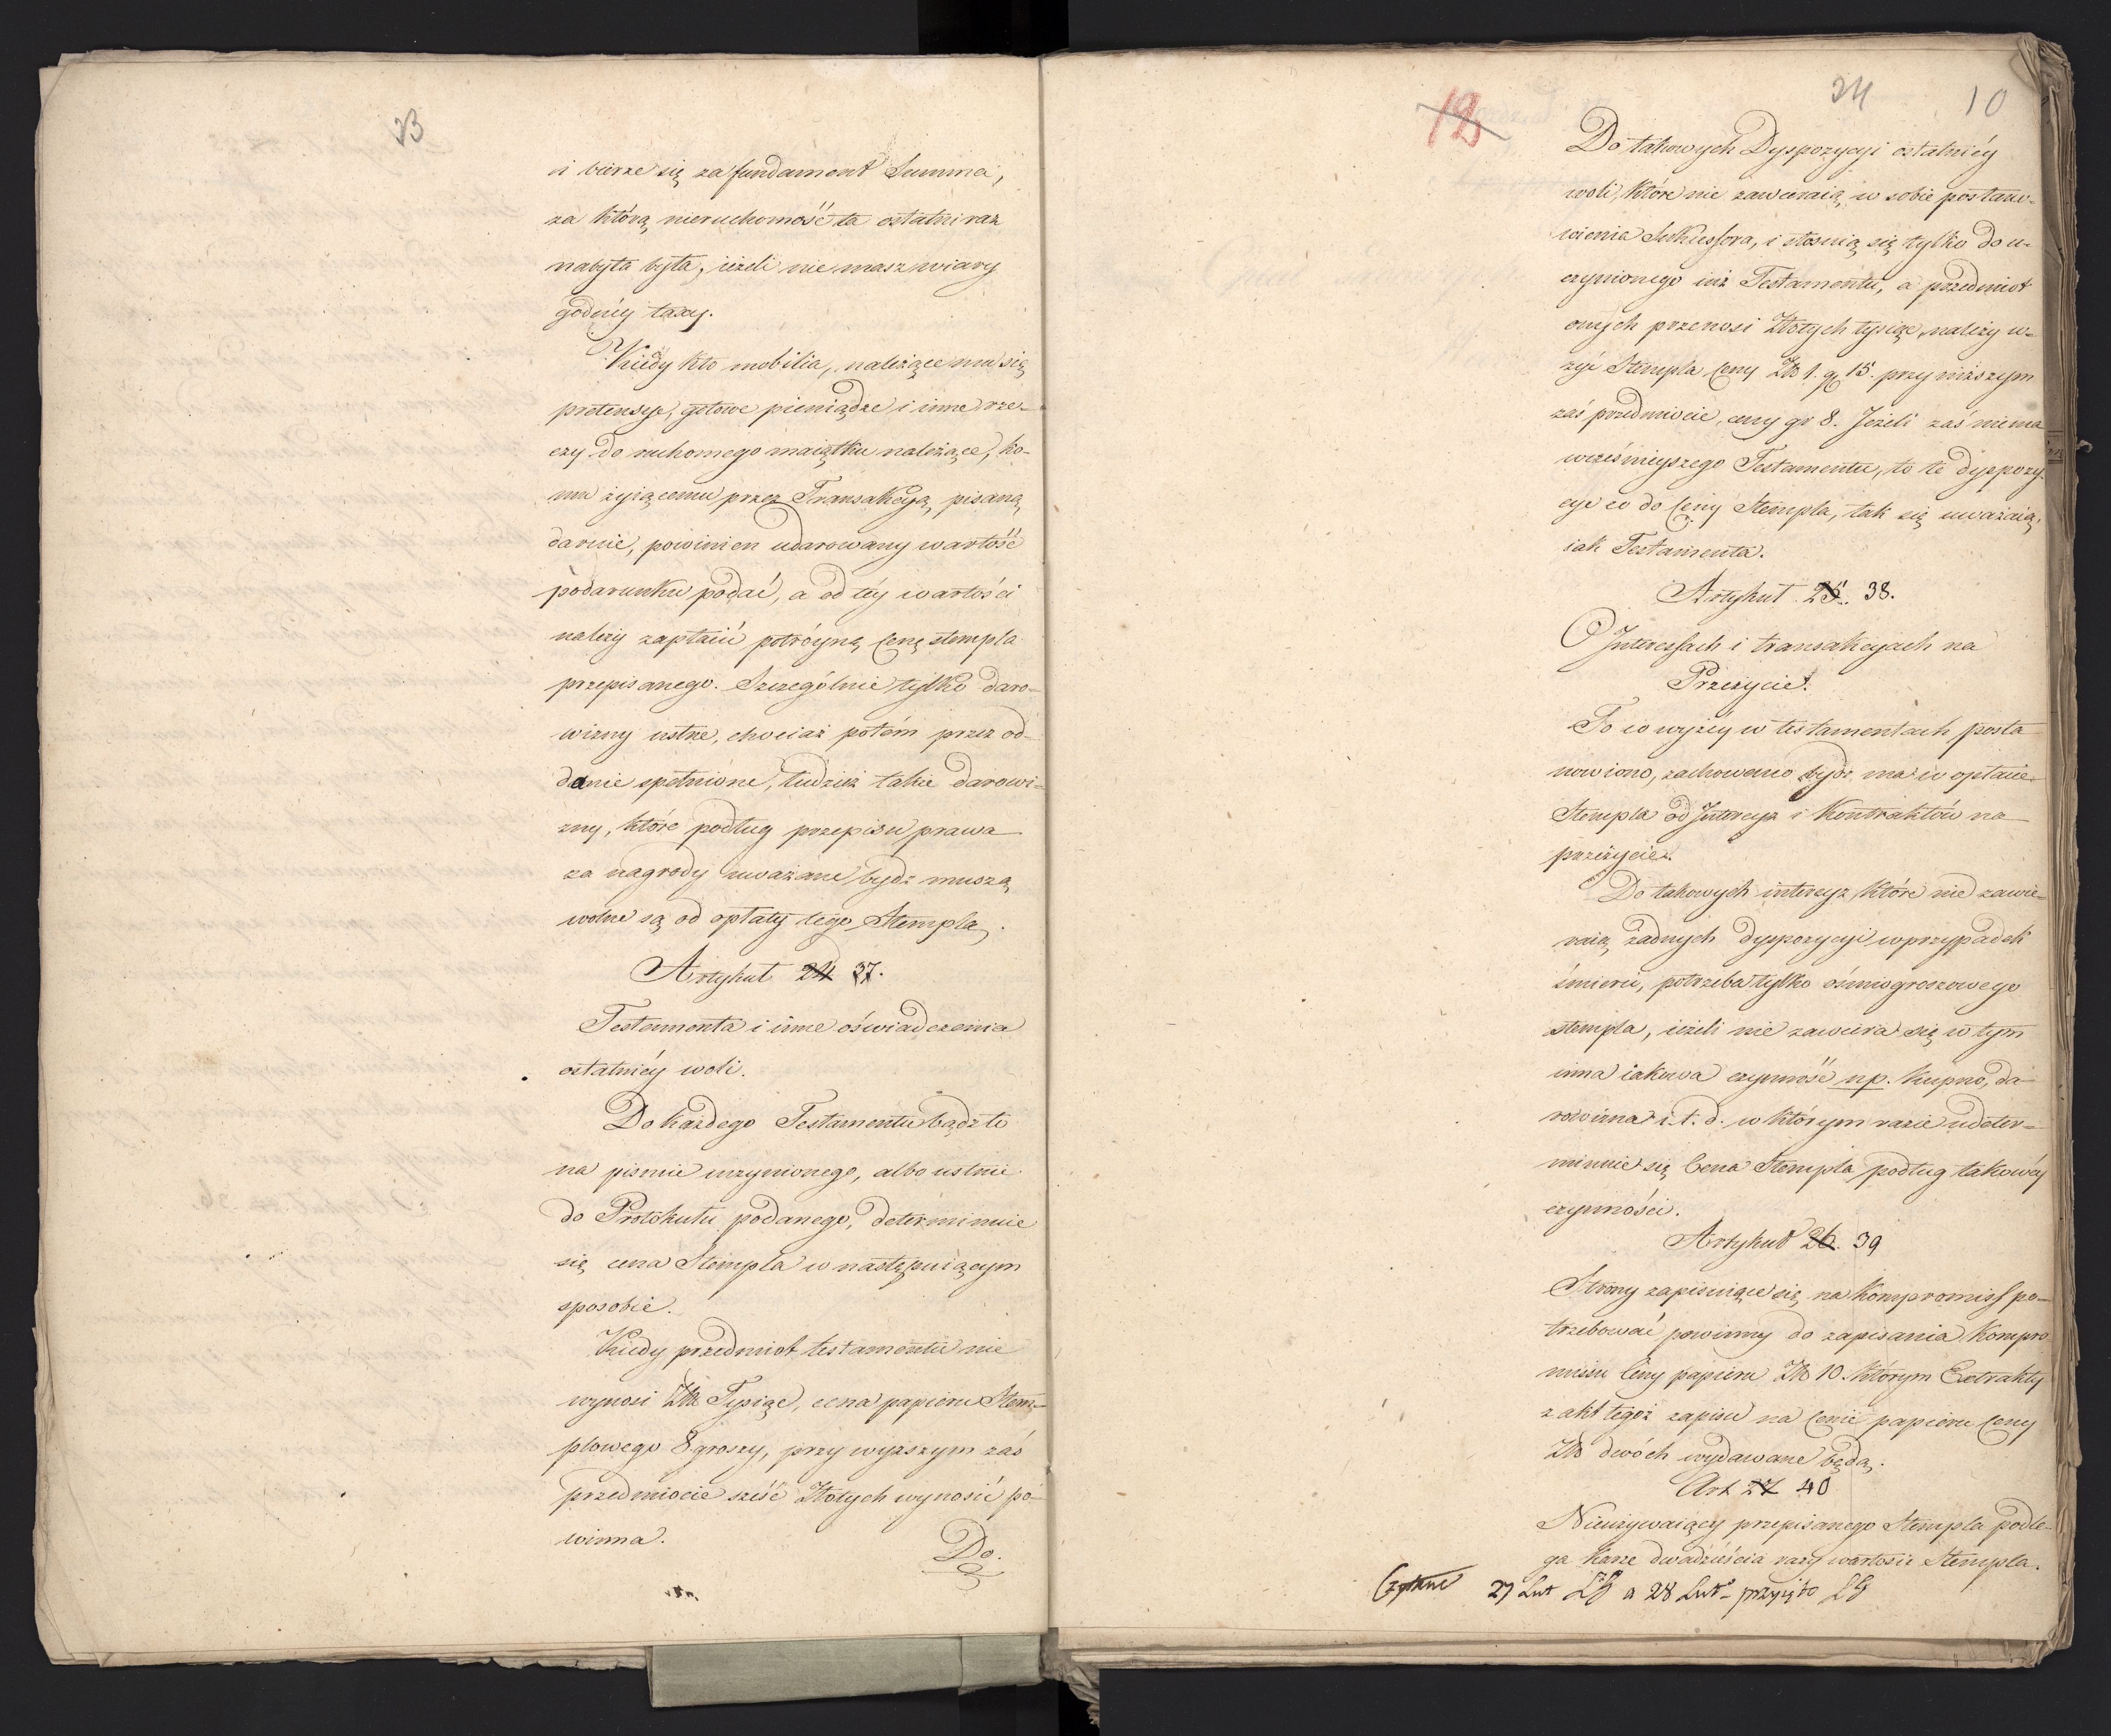 23
i bierze się za fundament Summa,
za którą nieruchomość ta ostatni raz
nabyta była, ieżeli nie masz wiary
godnéy taxy.
Kiedy kto mobilia, należące mu się
pretensye, gotowe pieniądze i inne rze-
czy do ruchomego maiątku należące, ko-
mu żyiącemu przez Transakcyą pisaną
daruie, powinien udarowany wartość
podarunku podać, a od téy wartości
należy zapłacić potróyną Cenę stempla
przepisanego. Szczególnie tylko daro-
wizny ustne, chociaż potém przez od-
danie spełnione, tudzież takie darowi-
zny, które podług przepisu prawa
za nagrody uważane bydź muszą
wolne są od opłaty tego Stempla.
Artykuł 24 37.
Testamenta i inne oświadczenia
ostatniéy woli.
Do każdego Testamentu bądź to
na piśmie uczynionego, albo ustnie
do Protokułu podanego, determinuie
się cena Stempla w następuiącym
sposobie.
Kiedy przedmiot testamentu nie
wynosi Złt Tysiąc, cena papieru Stem-
plowego 8 groszy, przy wyższym zaś
przedmiocie sześć Złotych wynosić po-
winna.
Do.
12
24
10
Do takowych Dyspozycyi ostatniéy
woli, które nie zawieraią w sobie postano-
wienia Sukcessora, i stosuią się tylko do u-
czynionego iuż Testamentu, a przedmiot
onych przenosi Złotych tysiąc, należy u-
żyć Stempla Ceny Złt 1. g 15. przy niższym
zaś przedmiocie, ceny gr 8. Jeżeli zaś niema
wcześnieyszego Testamentu, to te dyspozy-
cye co do Ceny Stempla, tak się uważaią,
iak Testamenta.
Artykuł 25. 38.
O Intercessach i transakcyach na
Przeżycie.
To co wyżéy w testamentach posta
nowiono, zachowano bydź ma w opłacie
Stempla od Intercyz i Kontraktów na
przeżycie.
Do takowych intercyz, które nie zawie-
raią żadnych dyspozycyi w przypadek
śmierci, potrzeba tylko ośmiogroszowego
stempla, ieżeli nie zawiera się w tym
inna iakowa czynność np. Kupno, da
rowizna i t. d. w którym razie udeter-
minuie się Cena Stempla podług takowéy
czynności.
Artykuł 26. 39
Strony zapisuiące się na Kompromiss po-
trzebować powinny do zapisania Kompro
missu Ceny papieru Złt 10. którym Extrakty
z akt tegoż zapisu na Cenie papieru Ceny
Złt dwóch wydawane będą.
Art 27 40
Nieużywaiący przepisanego Stempla podle-
ga karze dwadzieścia razy wartości Stempla.
Czytane 27 Lut LG a 28 Lut przyięto LG